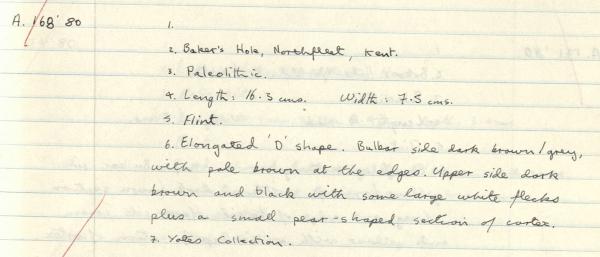 A. 168' 80
1.
2. Baker's Hole, Northfleet, Kent.
3. Paleolithic.
4. Length: 16.3 cms. Width: 7.5 cms.
5. Flint.
6. Elongated 'D' shape. Bulbar side dark brown/grey,
with pale brown at the edges. Upper side dark
brown and black with some large white flecks
plus a small pear-shaped section of cortex.
7. Yates Collection.